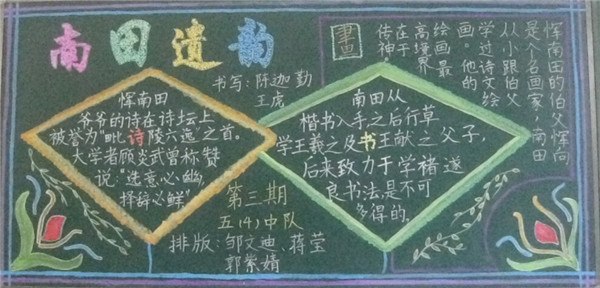 南田遗韵
书写:陈迦勤
王虎
恽南田
爷爷的诗在诗坛上
被誉为“毗诗陵六逸”之首。
大学者顾炎武曾称赞
说:“造意必幽,
择辞必鲜”
南田从
楷书入手之后行草
学王羲之及书王献之父子,
后来致力于学褚遂
良书法是不可
多得的。
第三期
五(4)中队
排版:邹文迪、蒋莹
郭紫婧
画
恽南田的伯父恽向
是个名画家,南田
从小跟伯父
学过诗文绘
画。他的
绘画最
高境界
在于
传神。